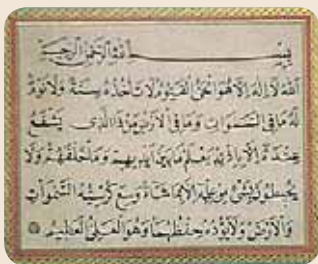 بسم الله الرحمن الرحيم
الله لا اله الا هو الحي القيوم لا تأخذه سنة ولا نوم
له ما في السموات وما في الارض من ذا الذي يشفع
عنده الا باذنه يعلم ما بين ايديهم وما خلفهم ولا
يحيطون بشئ من علمه الا بما شاء وسع كرسيه السموات
والارض ولا يؤده حفظهما وهو العلي العظيم